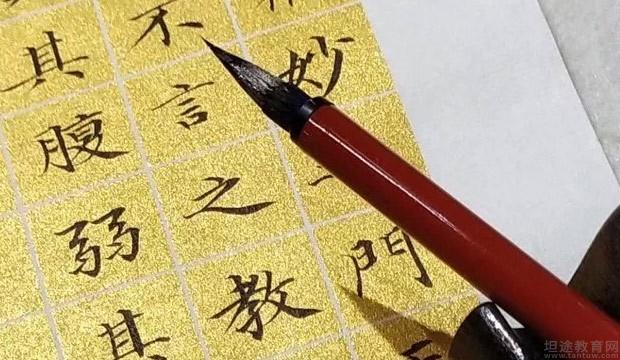 妙門
不言之教
其腹弱其
坦途教育网
www.tantuw.com